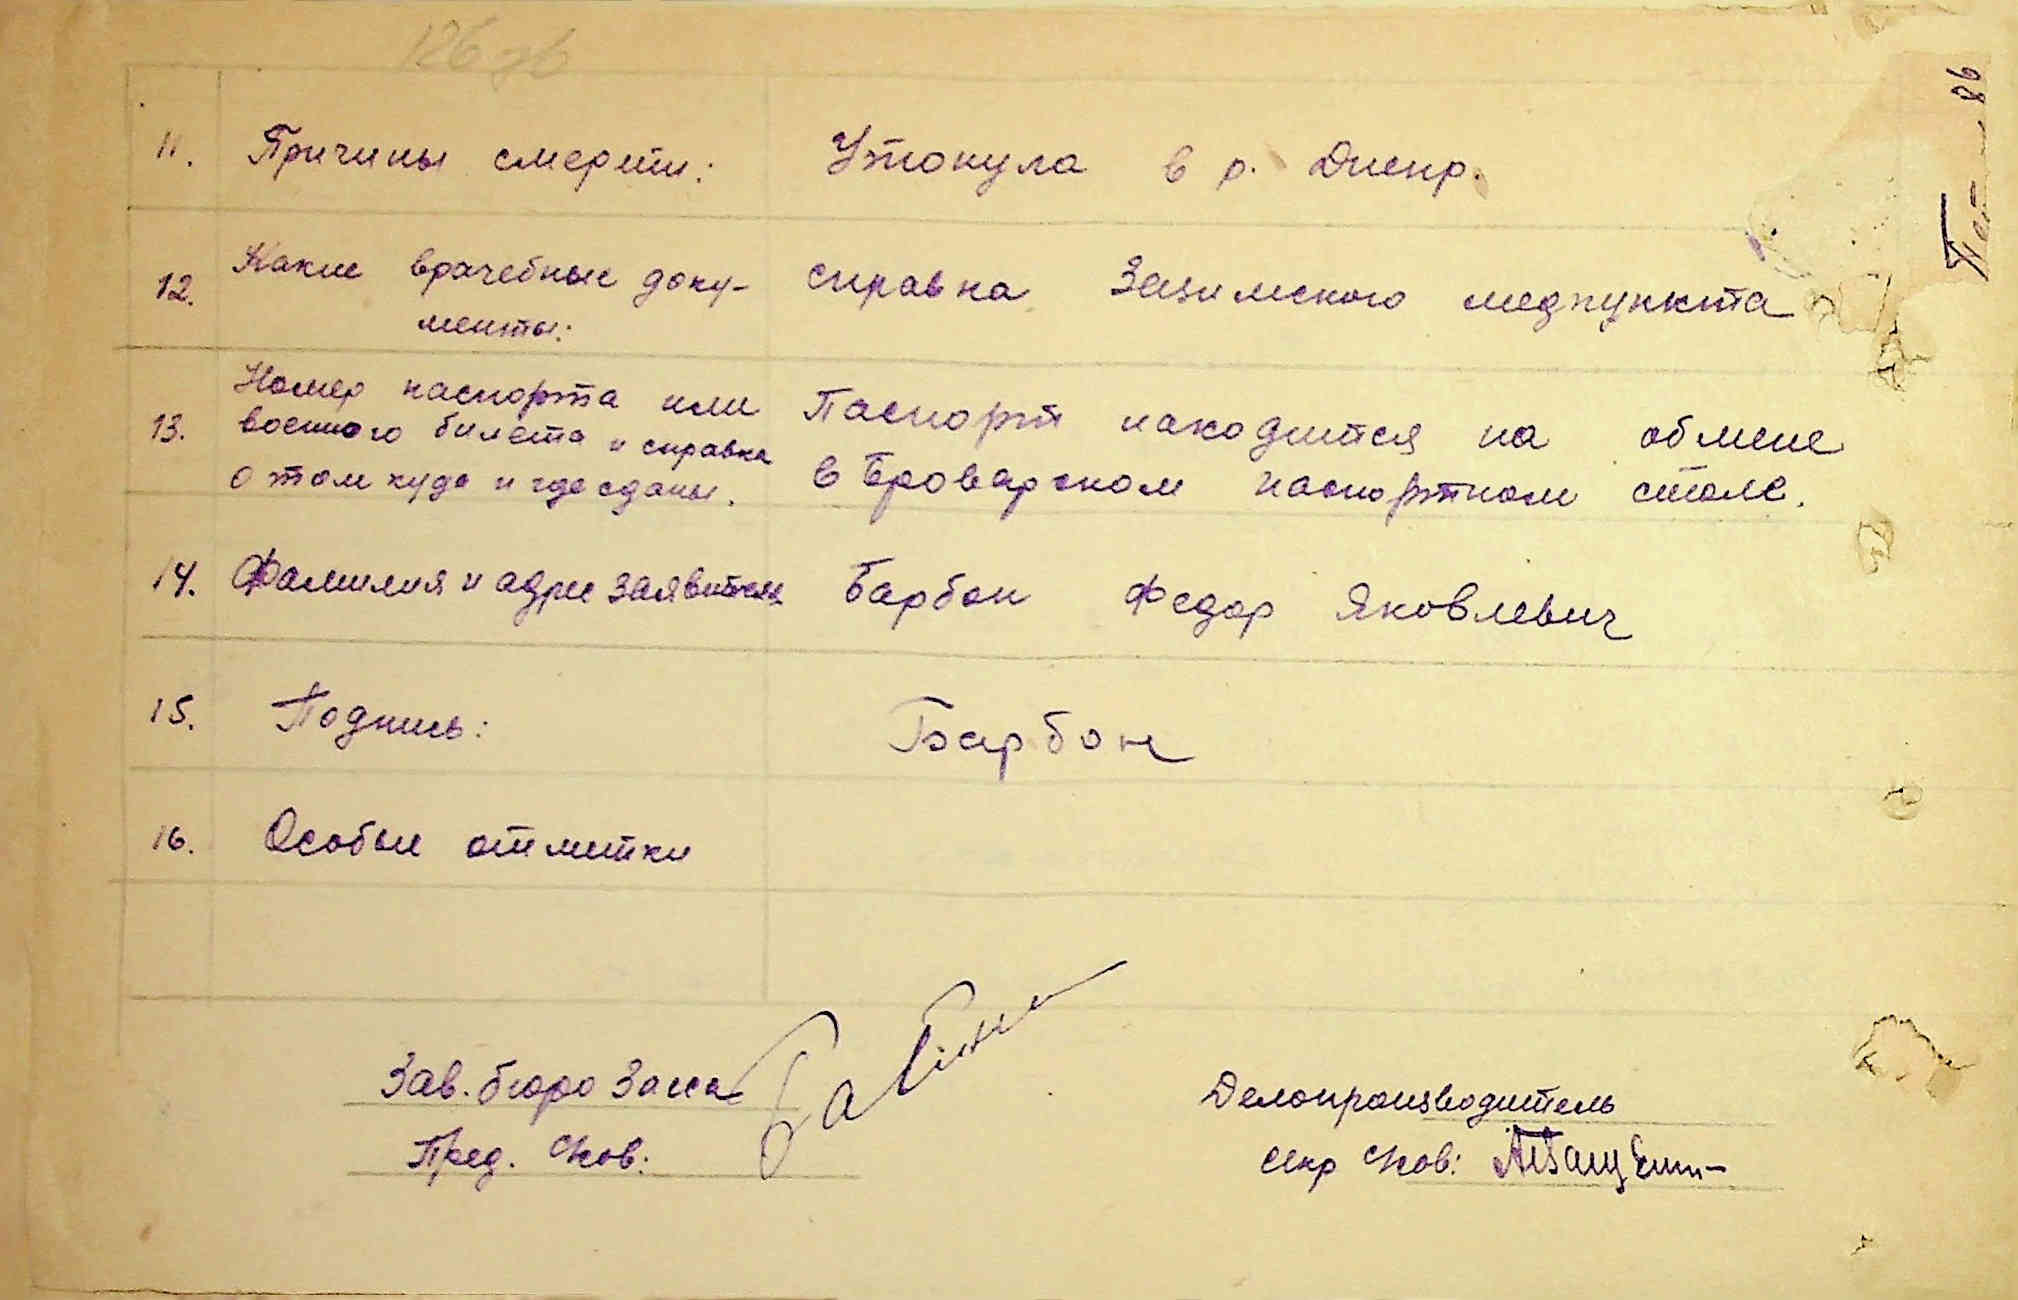 126 зв
11. Причины смерти: Утонула в р. Днепр.
12. Какие врачебные доку- справка Зазимского медпункта
менты:
13. Номер паспорта или
военного билета и справка
о том куда и где сданы.
Паспорт находится на обмене
в Броварском паспортном столе.
14. Фамилия и адрес заявителя Барбон Федор Яковлевич
15. Подпись: Барбон
16. Особые отметки
Зав. бюро Загса
Пред. с/сов:
Делопроизводитель
секр с/сов:
86